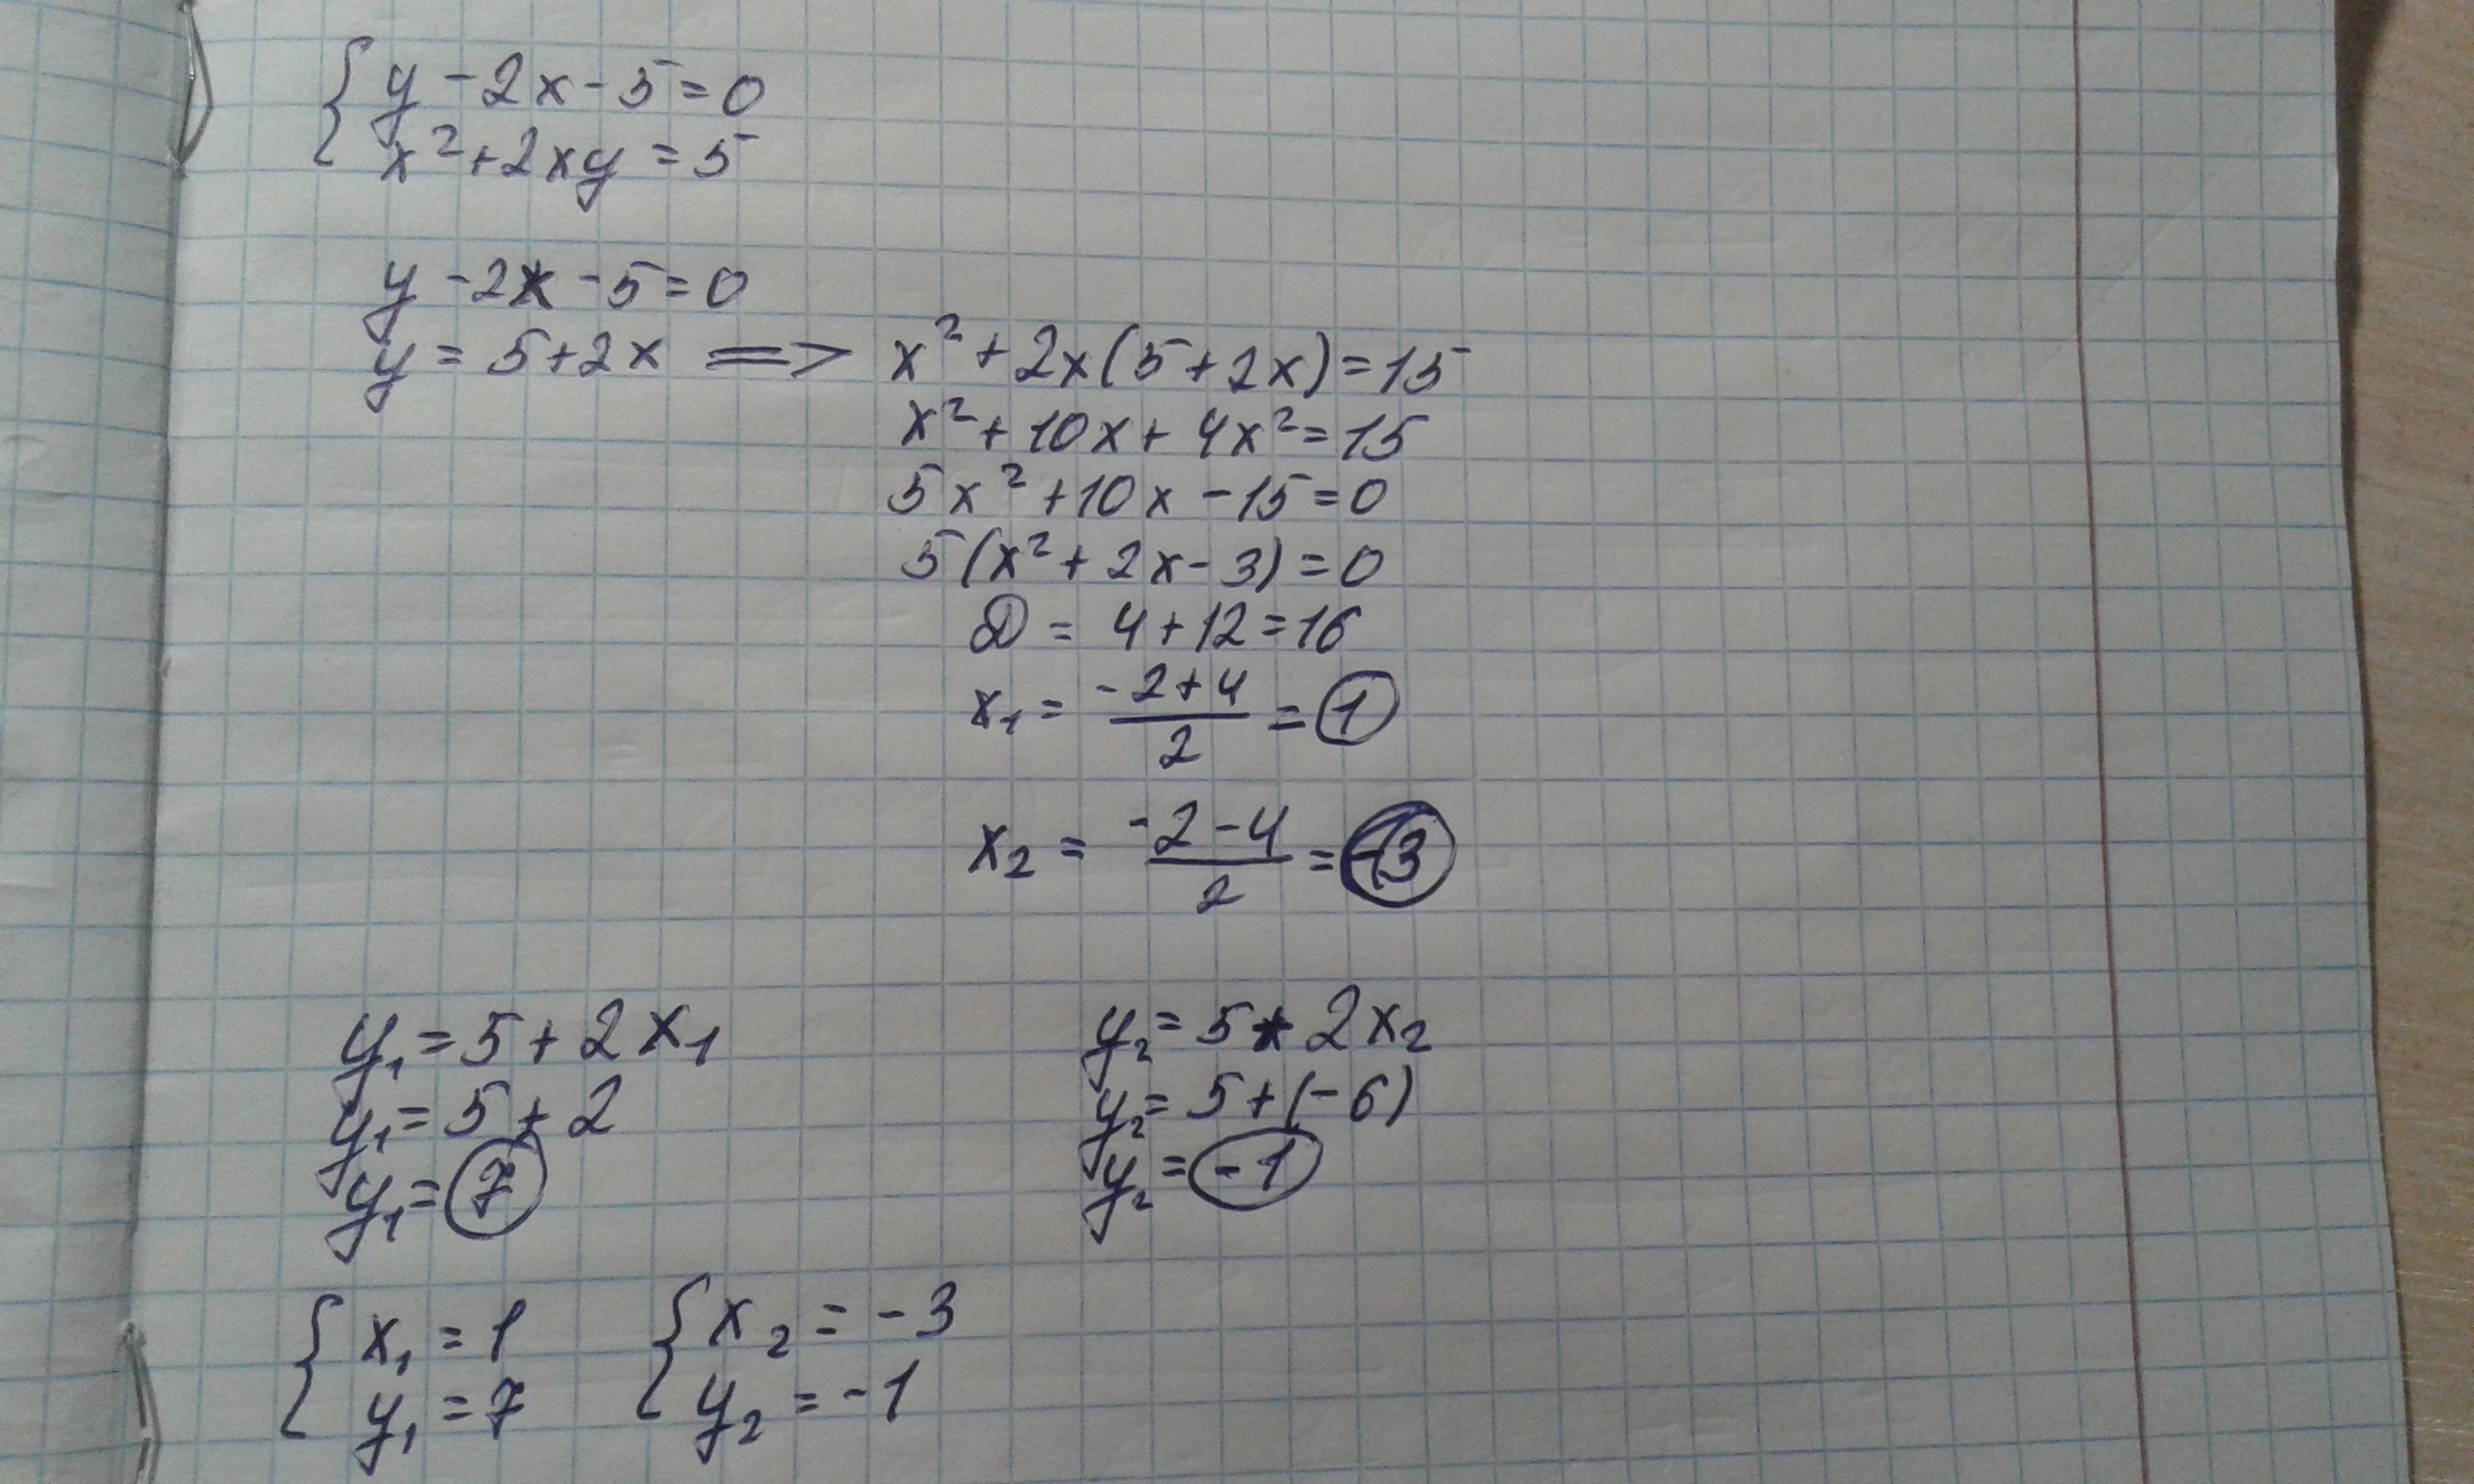 { y - 2x - 5 = 0
x² + 2xy = 5
y - 2x - 5 = 0
y = 5 + 2x => x² + 2x(5 + 2x) = 15
x² + 10x + 4x² = 15
5x² + 10x - 15 = 0
5(x² + 2x - 3) = 0
D = 4 + 12 = 16
x₁ = (-2+4)/2 = 1
x₂ = (-2-4)/2 = -3
y₁ = 5 + 2x₁
y₁ = 5 + 2
y₁ = 7
y₂ = 5 + 2x₂
y₂ = 5 + (-6)
y₂ = -1
{ x₁ = 1 { x₂ = -3
y₁ = 7 y₂ = -1